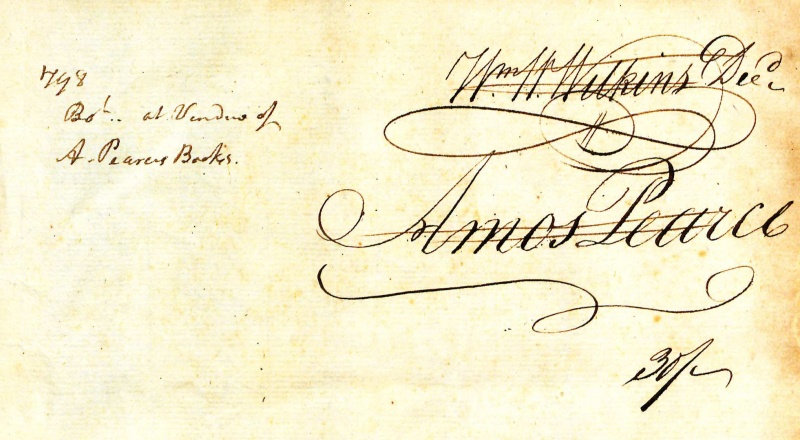 798
Bot. at Vendue of
A. Pearces Books.
Wm. W. Wilkins Decd
Amos Pearce
30/